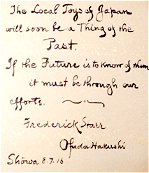 The Local Toys of Japan
will soon be a Thing of the
Past.
If the Future is to know of them
it must be through our
efforts.
Frederick Starr
Ofuda Hakushi
Showa 8.7.16